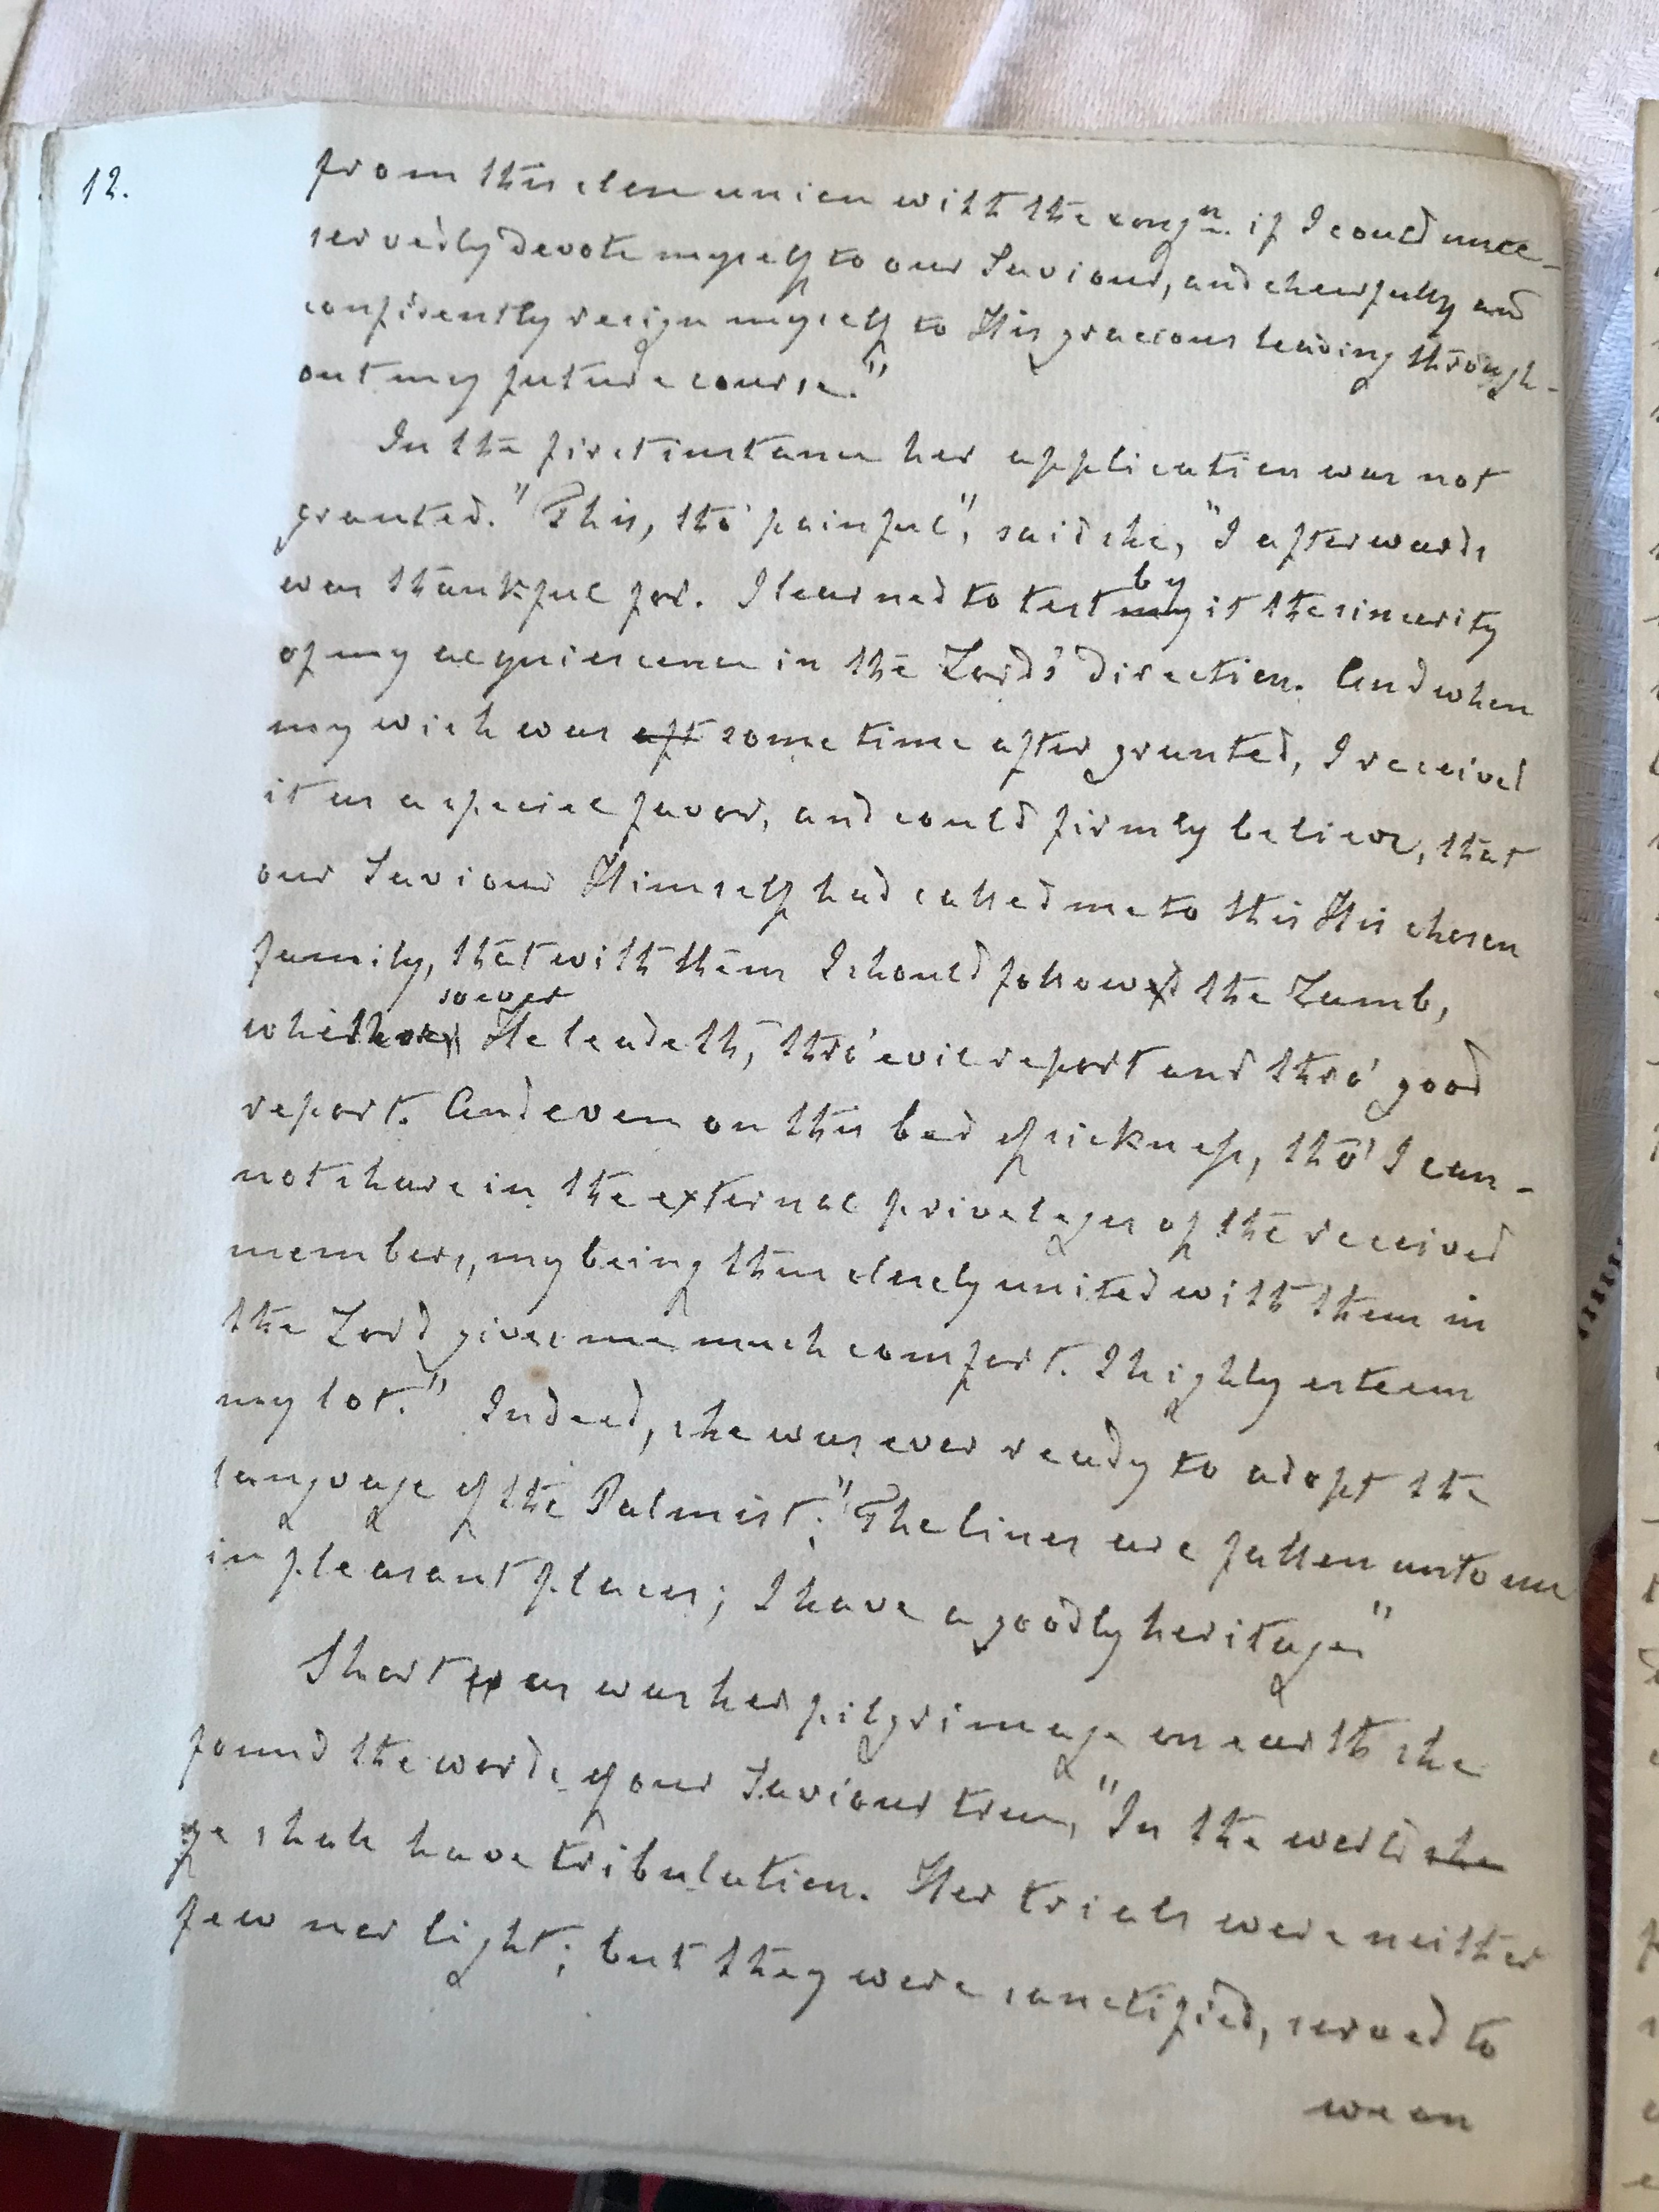 12.
from this close union with the congn. if I could unre-
servedly devote myself to our Saviour, and cheerfully and
confidently resign myself to His gracious leading through-
out my future course."
In the first instance her application was not
granted. "This, tho' painful", said she, "I afterwards
was thankful for. I learned to test my by it the sincerity
of my acquiescence in the Lord's direction. And when
my wish was aft some time after granted, I received
it as a special favor, and could firmly believe, that
our Saviour Himself had called me to this His chosen
family, that with them I should follow the Lamb,
whithersoever He leadeth, thro' evil report and thro' good
report. And even on this bed of sickness, tho' I can-
not share in the external priveleges of the received
members, my being thus closely united with them in
the Lord gives me much comfort. I highly esteem
my lot." Indeed, she was ever ready to adopt the
language of the Palmist; "The lines are fallen unto me
in pleasant places; I have a goodly heritage"
Short as was her pilgrimage on earth she
found the words of our Saviour true, "In the world she
ye shall have tribulation. Her trials were neither
few nor light; but they were sanctified, served to
wean